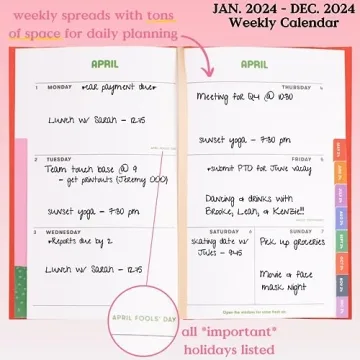 weekly spreads with tons
of space for daily planning
JAN. 2024 - DEC. 2024
Weekly Calendar
APRIL
1 MONDAY *car payment due*
Lunch w/ Sarah - 12:45
APRIL FOOLS' DAY
2 TUESDAY
Team touch base @ 9
- get printouts (Jeremy OOO)
sunset yoga - 7:30 pm
3 WEDNESDAY
*Reports due by 2
Lunch w/ Sarah - 12:45
APRIL
THURSDAY 4
Meeting for Q4 @ 10:30
sunset yoga - 7:30 pm
FRIDAY 5
*submit PTO for June vacay
Dancing & drinks with
Brooke, Leah, & Kenzie!!
SATURDAY 6
skating date w/
Jules - 9:45
SUNDAY 7
Pick up groceries
Movie & face
mask night
APRIL FOOLS' DAY
all *important*
holidays listed